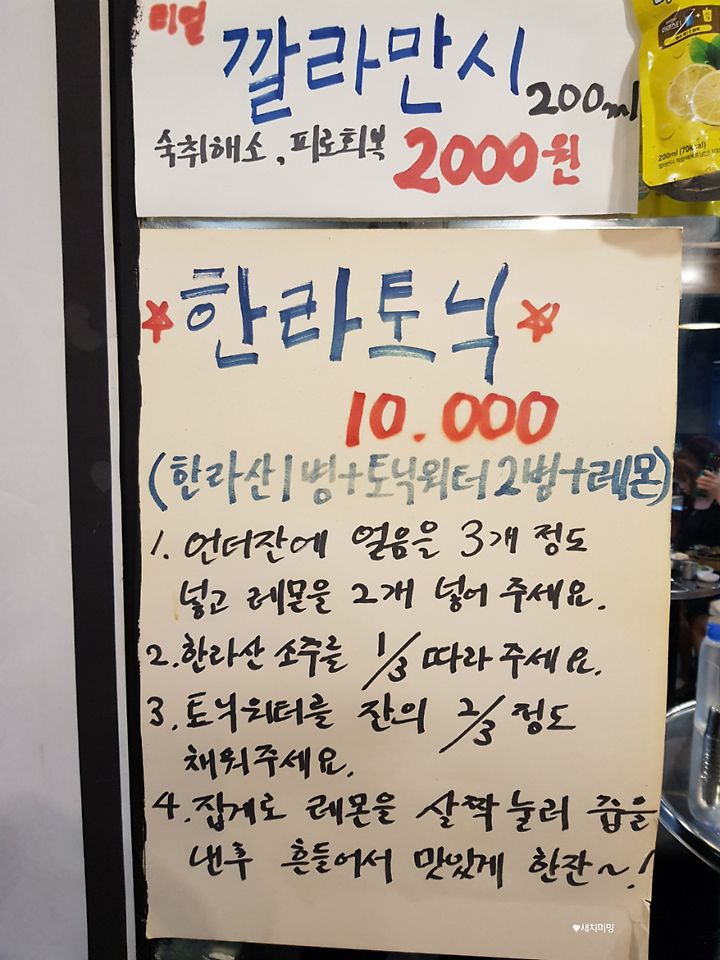 리얼
깔라만시
200ml
숙취해소, 피로회복 2000원
200ml (70kcal)
☆한라토닉☆
10.000
(한라산1병+토닉워터2병+레몬)
1. 언더잔에 얼음을 3개 정도
넣고 레몬을 2개 넣어 주세요.
2. 한라산 소주를 1/3 따라주세요.
3. 토닉워터를 잔의 2/3 정도
채워주세요.
4. 집게로 레몬을 살짝 눌러 즙을
낸후 흔들어서 맛있게 한잔~!
♥새치미밍